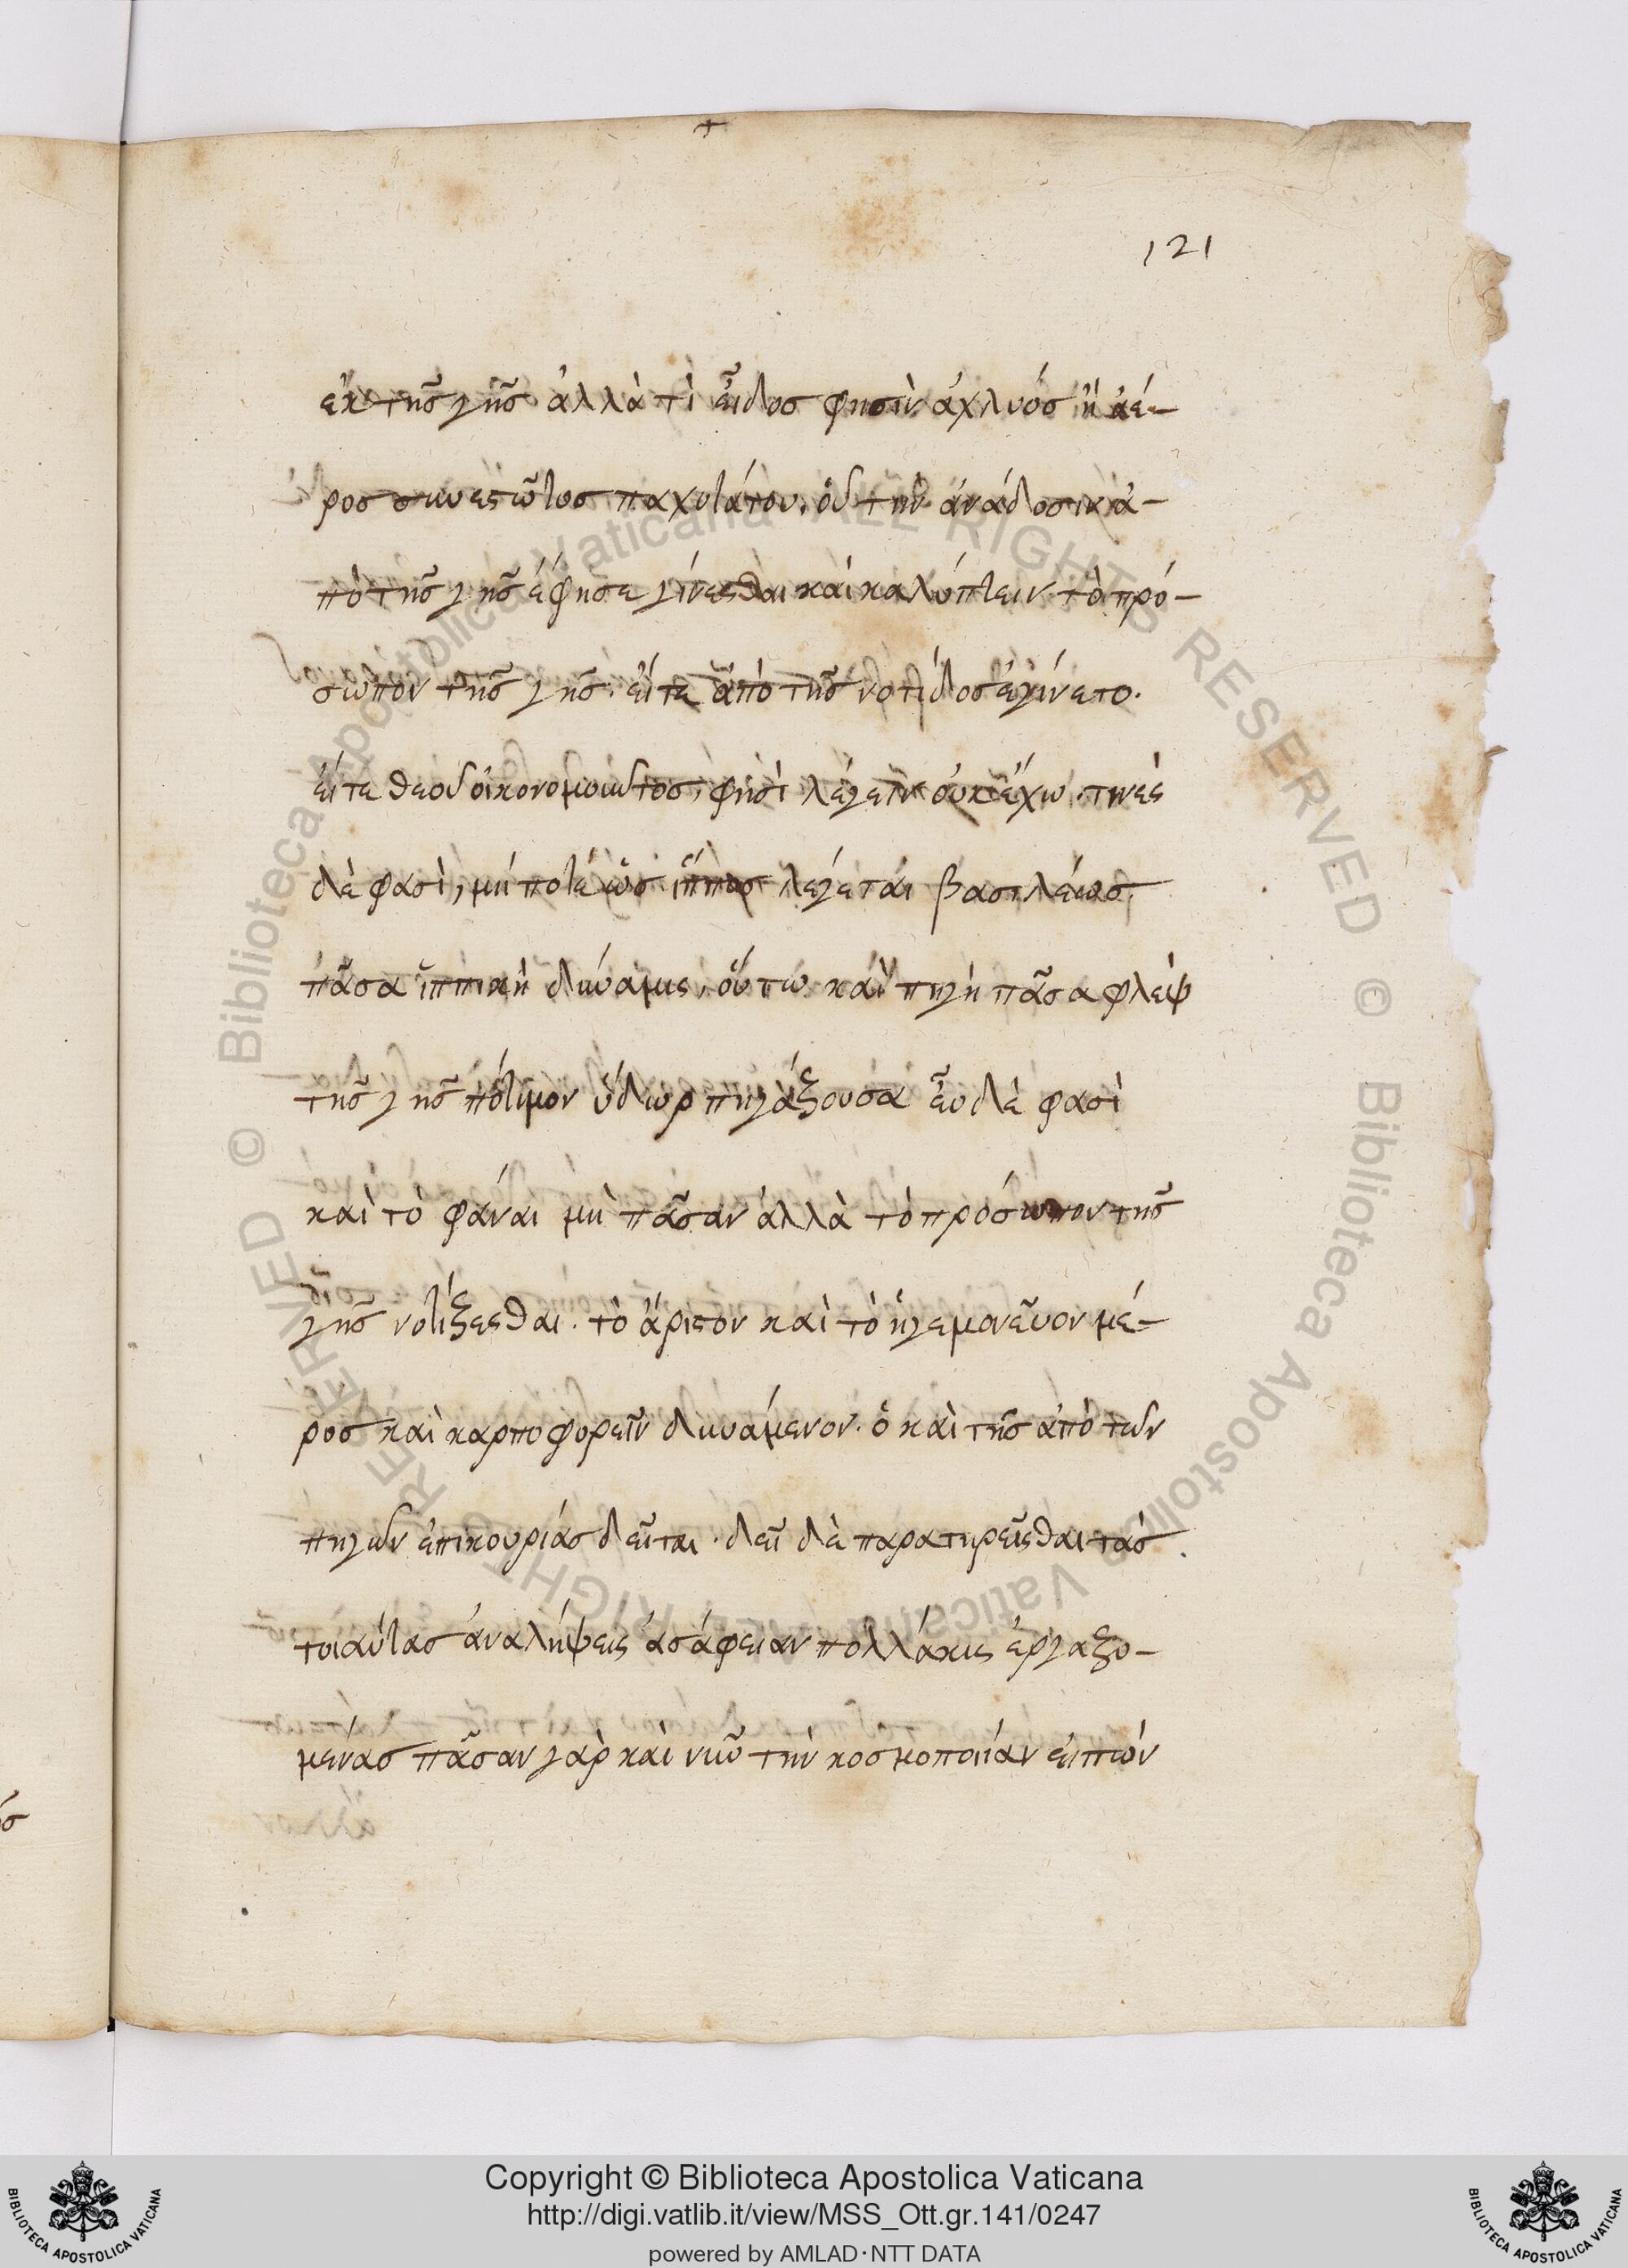 121
ἐκ τῆς γῆς ἀλλὰ τὶ εἶδος φησὶν ἀχλυός ἢ ἀέ-
ρος συνεστῶτος παχυτάτου. οὗ τὴν ἀνάδοσιν ἀ-
πὸ τῆς γῆς ἔφησε γίνεσθαι καὶ καλύπτειν τὸ πρό-
σωπον τῆς γῆς. εἴτε ἀπὸ τῆς νοτίδος ἐγίνετο.
εἴτε θεοῦ οἰκονομοῦντος, φησὶ λέγειν οὐκ ἔχω. τινὲς
δὲ φασὶ, μή ποτε ὡς ἵππος λέγεται βασιλέως
πᾶσα ἱππικὴ δύναμις, οὕτω καὶ πηγὴ πᾶσα φλὲψ
τῆς γῆς πότιμον ὕδωρ πηγάζουσα εὖ δὲ φασὶ
καὶ τὸ φάναι μὴ πᾶσαν ἀλλὰ τὸ πρόσωπον τῆς
γῆς ποτίζεσθαι. τὸ ἄριστον καὶ τὸ ἡγεμονεῦον μέ-
ρος καὶ καρποφορεῖν δυνάμενον. ὃ καὶ τῆς ἀπὸ τῶν
πηγῶν ἐπικουρίας δεῖται. δεῖ δὲ παρατηρεῖσθαι τὰς
τοιαύτας ἀναλήψεις ἀσάφειαν πολλάκις ἐργαζο-
μένας πᾶσαν γὰρ καὶ νῦν τὴν κοσμοποιίαν εἰπὼν
Copyright © Biblioteca Apostolica Vaticana
http://digi.vatlib.it/view/MSS_Ott.gr.141/0247
powered by AMLAD·NTT DATA
BIBLIOTECA APOSTOLICA VATICANA
BIBLIOTECA APOSTOLICA VATICANA